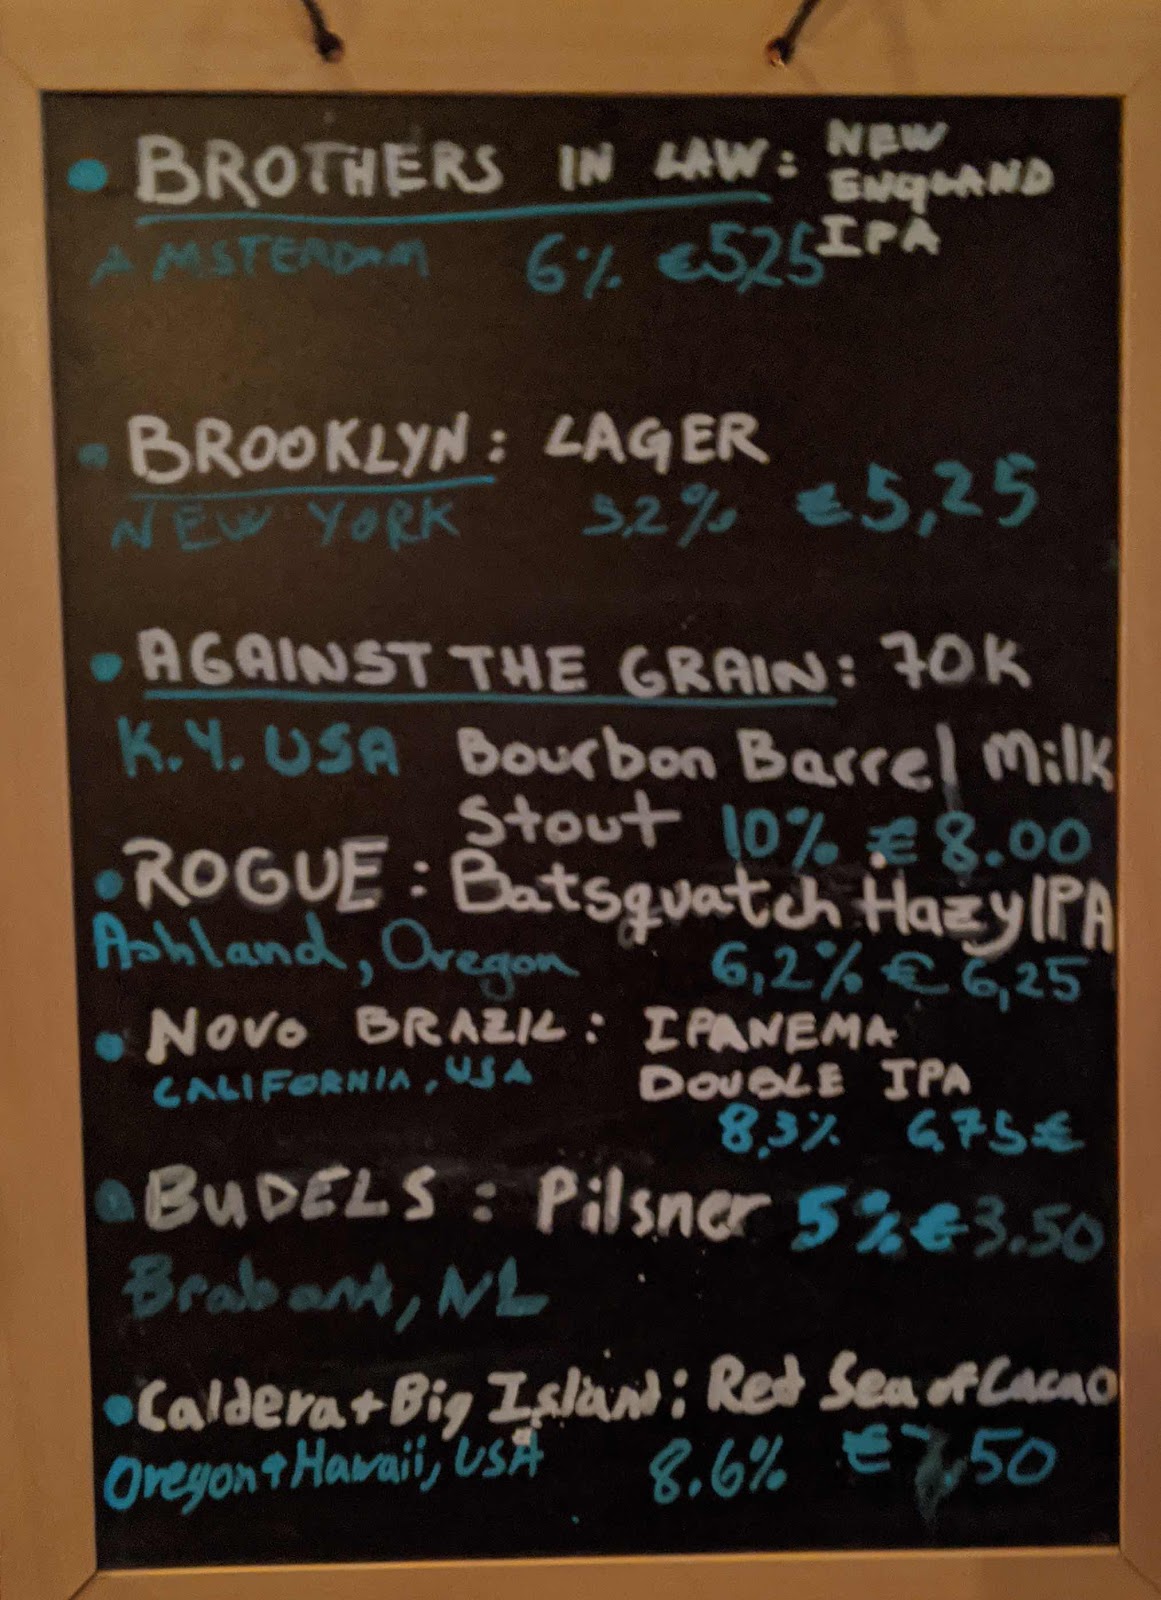 BROTHERS IN LAW: NEW ENGLAND IPA
AMSTERDAM 6% €5,25
BROOKLYN: LAGER
NEW YORK 5,2% €5,25
AGAINST THE GRAIN: 70K
K.Y. USA Bourbon Barrel Milk
Stout 10% € 8.00
ROGUE: Batsquatch Hazy IPA
Ashland, Oregon 6,2% € 6,25
NOVO BRAZIL: IPANEMA
CALIFORNIA, USA DOUBLE IPA
8,3% 6,75€
BUDELS: Pilsner 5% €3.50
Brabant, NL
Caldera + Big Island: Red Sea of Cacao
Oregon + Hawaii, USA 8.6% €7.50